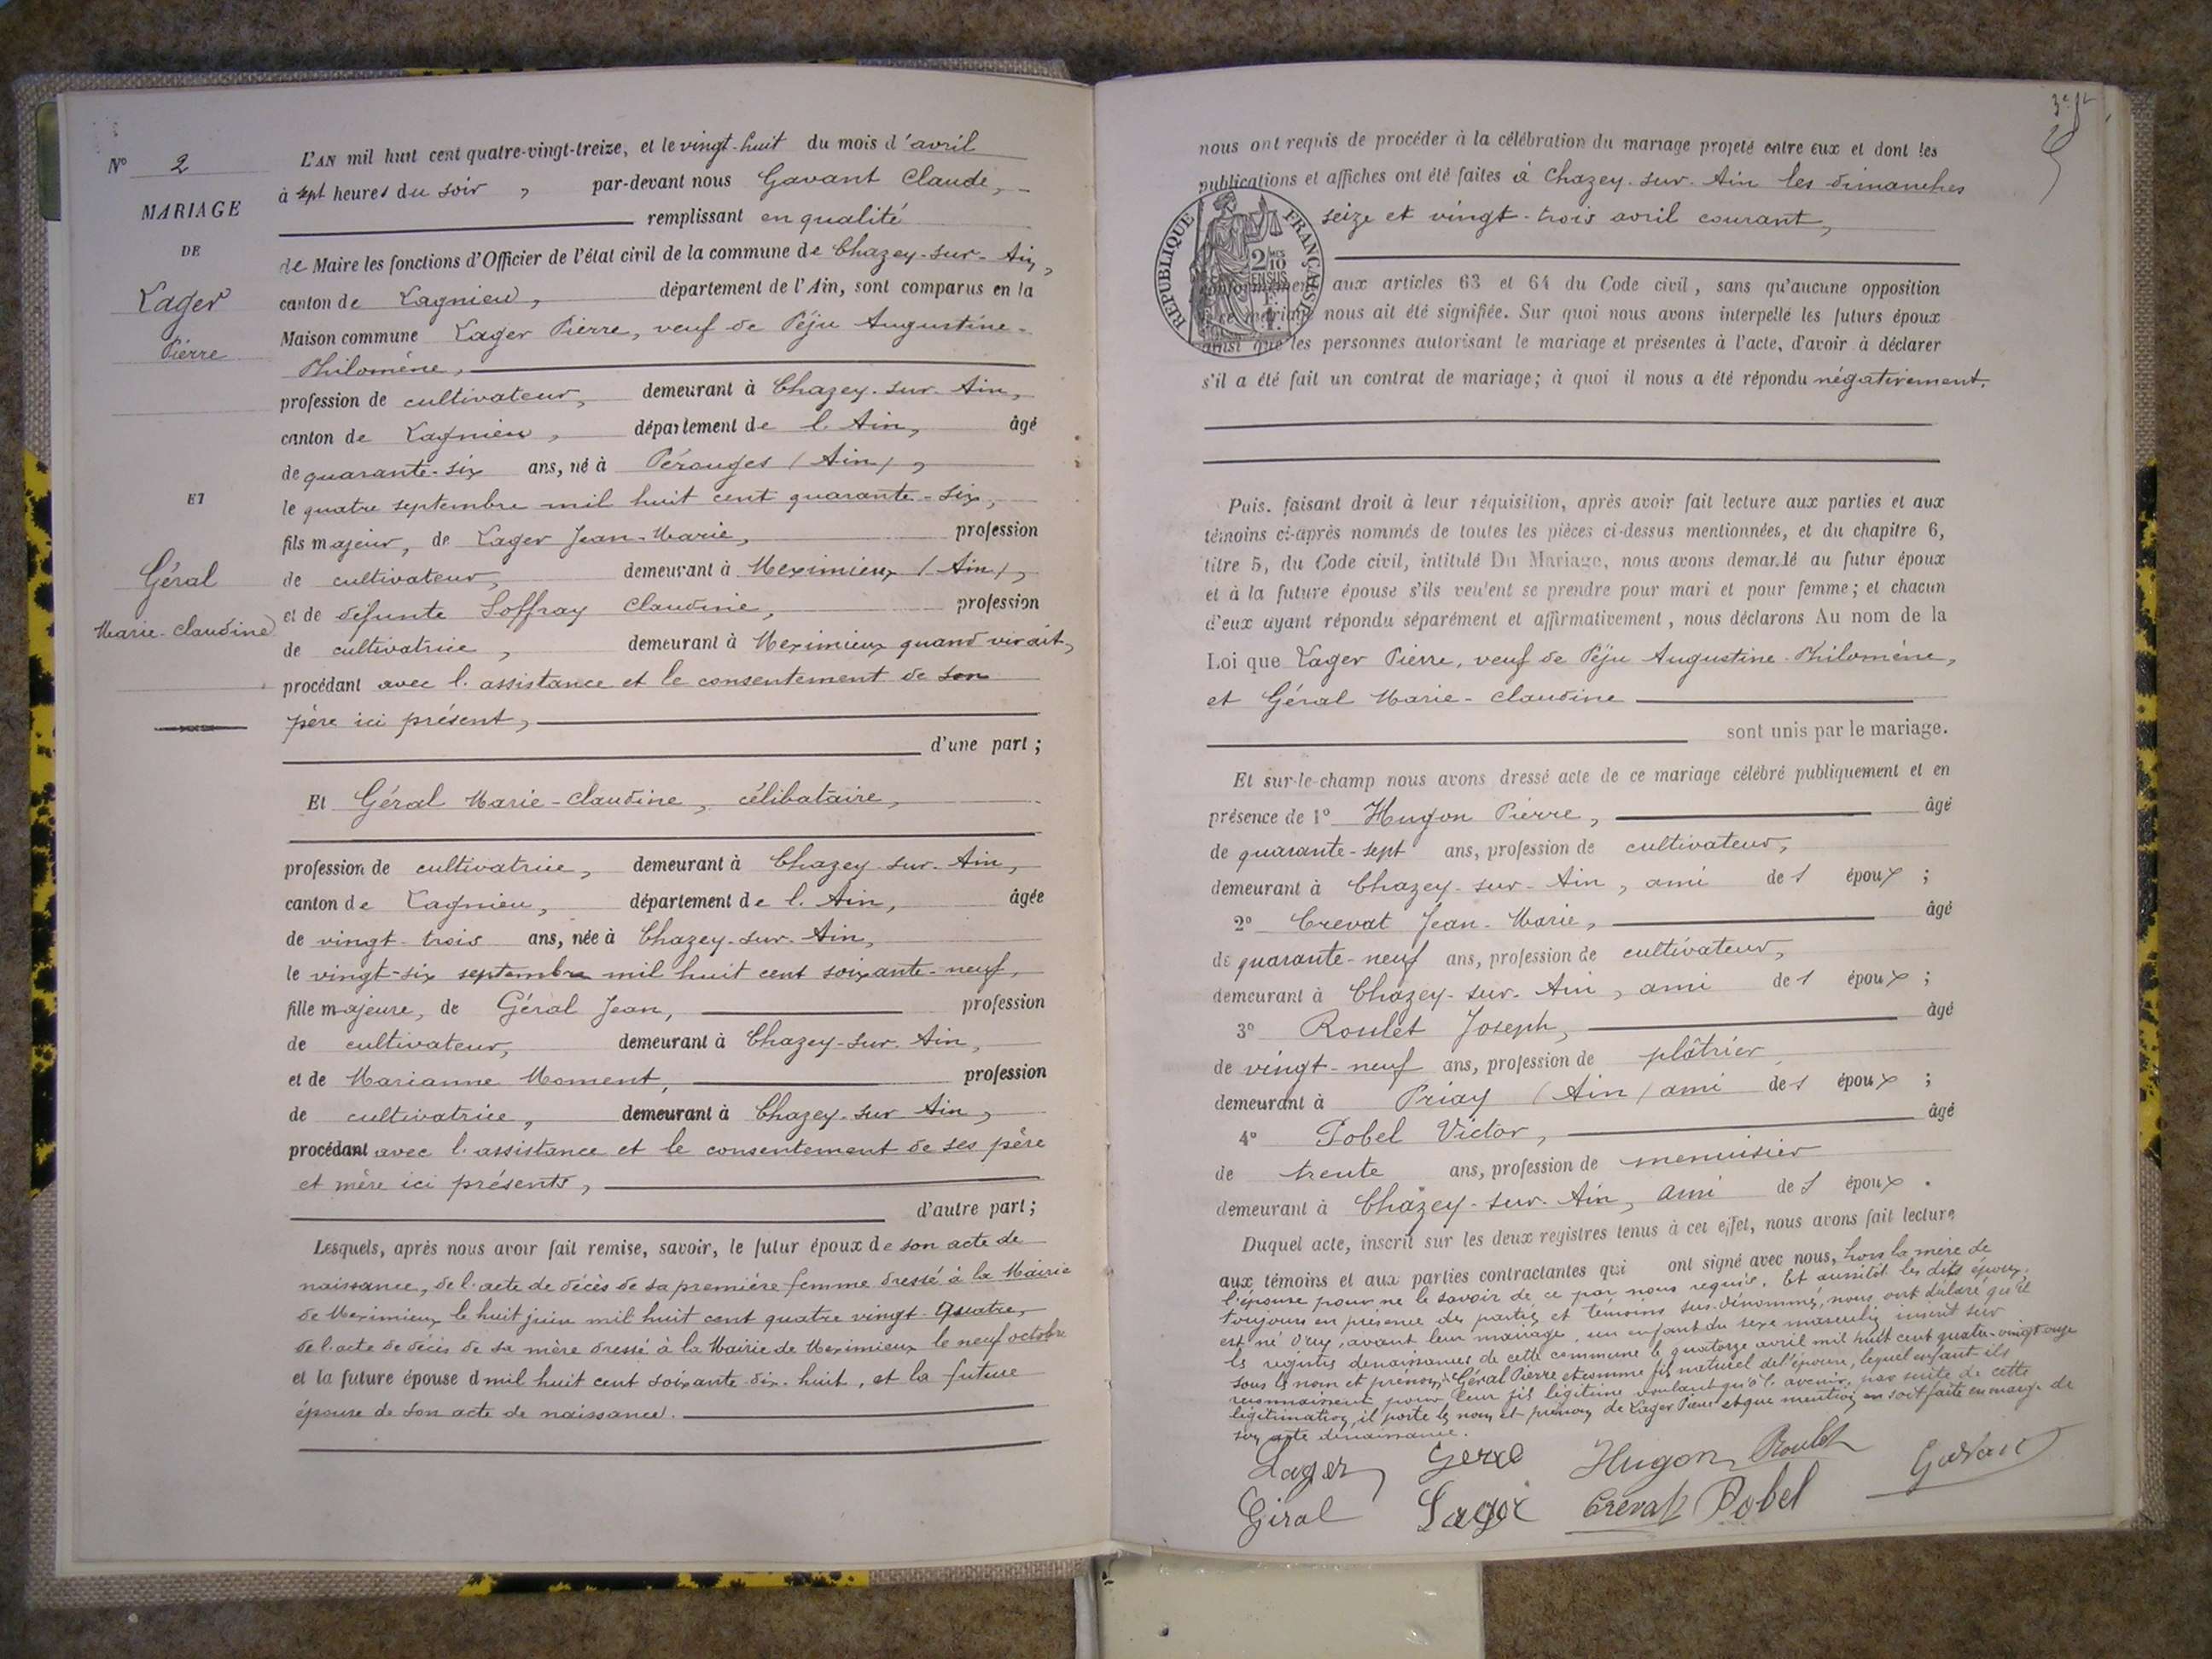 N° 2
MARIAGE
DE
Lager
Pierre
ET
Géral
Marie-Claudine
L'AN mil huit cent quatre-vingt-treize, et le vingt-huit du mois d'avril
à sept heures du soir, par-devant nous Gavant Claude,
remplissant en qualité
de Maire les fonctions d'Officier de l'état civil de la commune de Chazey-sur-Ain,
canton de Lagnieu, département de l'Ain, sont comparus en la
Maison commune Lager Pierre, veuf de Péju Augustine-
Philomène,
profession de cultivateur, demeurant à Chazey-sur-Ain,
canton de Lagnieu, département de l'Ain, âgé
de quarante-six ans, né à Pérouges (Ain),
le quatre septembre mil huit cent quarante-six,
fils majeur, de Lager Jean-Marie, profession
de cultivateur, demeurant à Meximieux (Ain),
et de défunte Soffray Claudine, profession
de cultivatrice, demeurant à Meximieux quand vivait,
procédant avec l'assistance et le consentement de son
père ici présent,
d'une part;
Et Géral Marie-Claudine, célibataire,
profession de cultivatrice, demeurant à Chazey-sur-Ain,
canton de Lagnieu, département de l'Ain, âgée
de vingt-trois ans, née à Chazey-sur-Ain,
le vingt-six septembre mil huit cent soixante-neuf,
fille majeure, de Géral Jean, profession
de cultivateur, demeurant à Chazey-sur-Ain,
et de Marianne Moment, profession
de cultivatrice, demeurant à Chazey-sur-Ain,
procédant avec l'assistance et le consentement de ses père
et mère ici présents,
d'autre part;
Lesquels, après nous avoir fait remise, savoir, le futur époux de son acte de
naissance, de l'acte de décès de sa première femme dressé à la Mairie
de Meximieux le huit juin mil huit cent quatre vingt-quatre,
de l'acte de décès de sa mère dressé à la Mairie de Meximieux le neuf octobre
et la future épouse d mil huit cent soixante-dix-huit, et la future
épouse de son acte de naissance.
nous ont requis de procéder à la célébration du mariage projeté entre eux et dont les
publications et affiches ont été faites à Chazey-sur-Ain les dimanches
seize et vingt-trois avril courant,
REPUBLIQUE FRANÇAISE
2/10
EN SUS
conformément aux articles 63 et 64 du Code civil, sans qu'aucune opposition
à ce mariage nous ait été signifiée. Sur quoi nous avons interpellé les futurs époux
ainsi que les personnes autorisant le mariage et présentes à l'acte, d'avoir à déclarer
s'il a été fait un contrat de mariage; à quoi il nous a été répondu négativement.
Puis, faisant droit à leur réquisition, après avoir fait lecture aux parties et aux
témoins ci-après nommés de toutes les pièces ci-dessus mentionnées, et du chapitre 6,
titre 5, du Code civil, intitulé Du Mariage, nous avons demandé au futur époux
et à la future épouse s'ils veulent se prendre pour mari et pour femme; et chacun
d'eux ayant répondu séparément et affirmativement, nous déclarons Au nom de la
Loi que Lager Pierre, veuf de Péju Augustine-Philomène,
et Géral Marie-Claudine
sont unis par le mariage.
Et sur-le-champ nous avons dressé acte de ce mariage célébré publiquement et en
présence de 1° Hugon Pierre, âgé
de quarante-sept ans, profession de cultivateur,
demeurant à Chazey-sur-Ain, ami de l époux;
2° Crevat Jean-Marie, âgé
de quarante-neuf ans, profession de cultivateur,
demeurant à Chazey-sur-Ain, ami de l époux;
3° Roulet Joseph, âgé
de vingt-neuf ans, profession de plâtrier
demeurant à Priay (Ain) ami de l époux;
4° Pobel Victor, âgé
de trente ans, profession de menuisier
demeurant à Chazey-sur-Ain, ami de l époux.
Duquel acte, inscrit sur les deux registres tenus à cet effet, nous avons fait lecture
aux témoins et aux parties contractantes qui ont signé avec nous, hors la mère de
l'épouse pour ne le savoir de ce par nous requise. Et aussitôt les dits époux,
toujours en présence des parties et témoins sus-dénommés, nous ont déclaré qu'il
est né d'eux, avant leur mariage, un enfant du sexe masculin inscrit sur
les registres de naissances de cette commune le quatorze avril mil huit cent quatre-vingt onze
sous les nom et prénom Géral Pierre et comme fils naturel de l'épouse, lequel enfant ils
reconnaissent pour leur fils légitime voulant qu'à l'avenir, par suite de cette
légitimation, il porte les nom et prénom de Lager Pierre et que mention en soit faite en marge de
son acte de naissance.
Lager Geral Hugon Roulet Gavant
Giral Lager Crevat Pobel